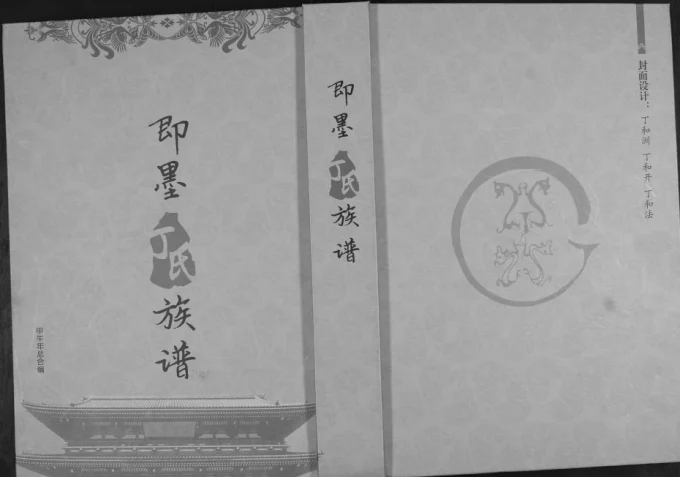 即墨丁氏族谱
甲午年总合编
即墨丁氏族谱
封面设计：丁和洲 丁和升 丁和法